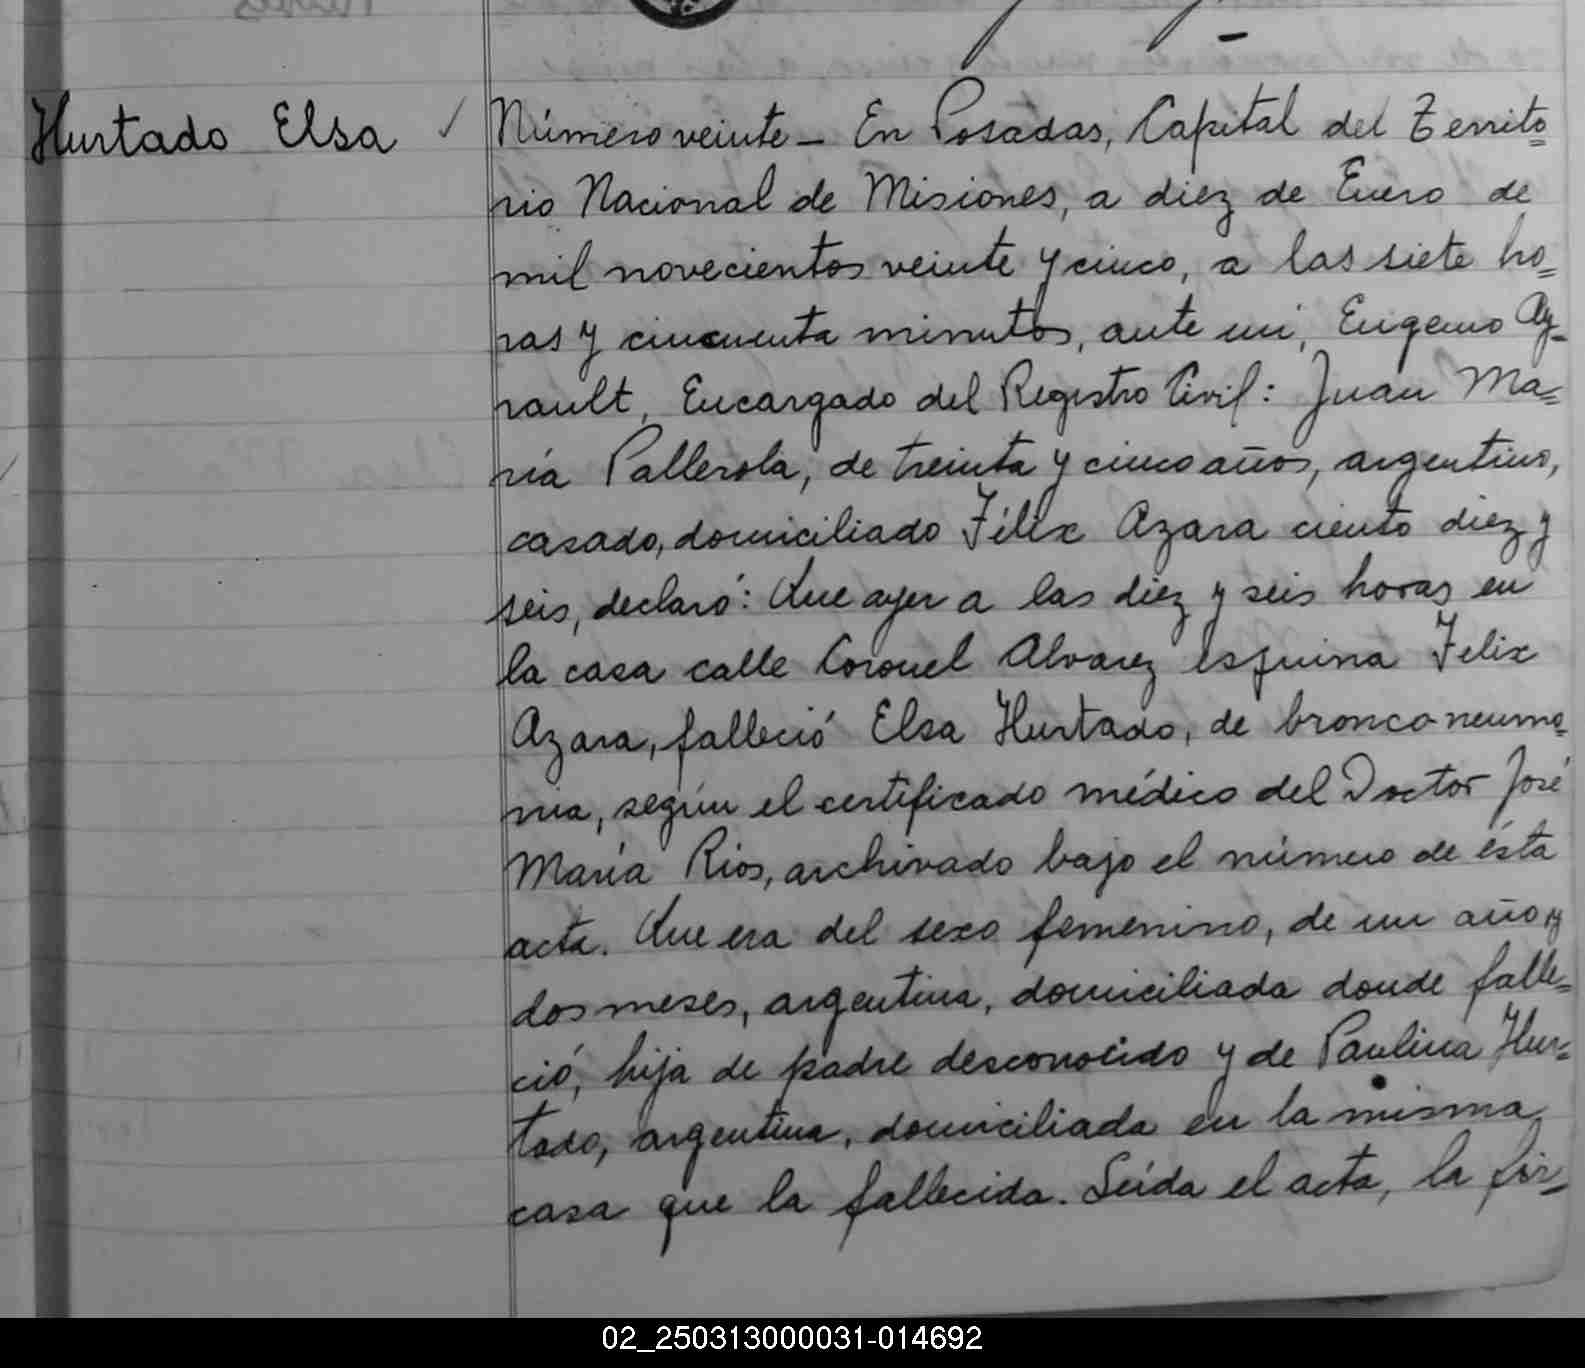 Hurtado Elsa ✓
Número veinte - En Posadas, Capital del Territo=
rio Nacional de Misiones, a diez de Enero de
mil novecientos veinte y cinco, a las siete ho=
ras y cincuenta minutos, ante mi, Eugenio Ay-
rault, Encargado del Registro Civil: Juan Ma=
ría Pallerola, de treinta y cinco años, argentino,
casado, domiciliado Félix Azara ciento diez y
seis, declaró: Que ayer a las diez y seis horas en
la casa calle Coronel Alvarez esquina Felix
Azara, falleció Elsa Hurtado, de bronconeumo=
nia, según el certificado médico del Doctor José
María Rios, archivado bajo el número de ésta
acta. Que era del sexo femenino, de un año y
dos meses, argentina, domiciliada donde falle=
ció, hija de padre desconocido y de Paulina Hur=
tado, argentina, domiciliada en la misma
casa que la fallecida. Leída el acta, la fir=
02_250313000031-014692